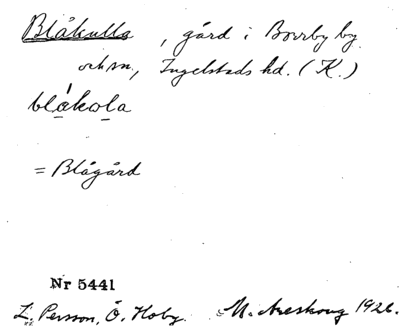 Blåkulla, gård i Borrby by
och sn, Ingelstads hd. (K.)
blåkola
= Blågård
Nr 5441
L. Persson, Ö. Hoby. M. Areskoug 1926.